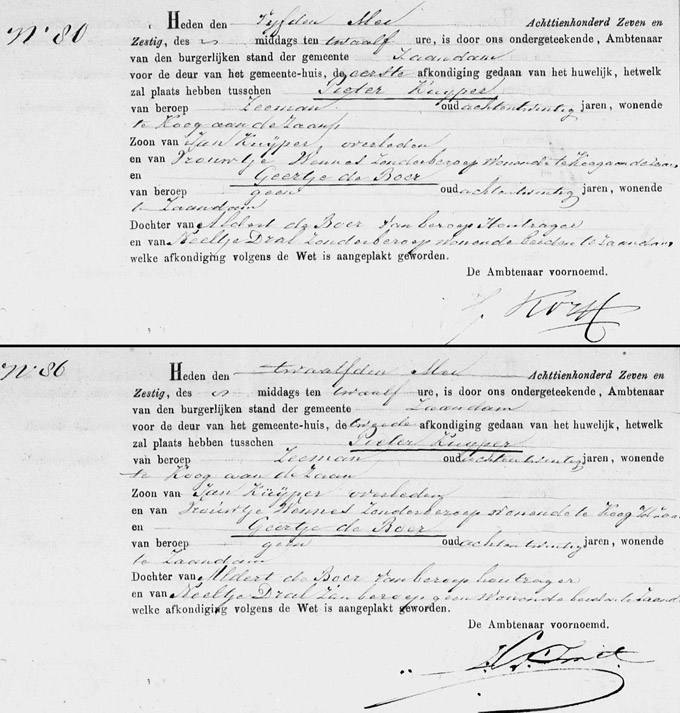 No. 80
Heden den Vijfden Mei Achttienhonderd Zeven en
Zestig, des s middags ten twaalf ure, is door ons ondergeteekende, Ambtenaar
van den burgerlijken stand der gemeente Zaandam
voor de deur van het gemeente-huis, de eerste afkondiging gedaan van het huwelijk, hetwelk
zal plaats hebben tusschen Pieter Kuyper
van beroep Zeeman oud achtentwintig jaren, wonende
te Koog aan de Zaan,
Zoon van Jan Kuÿper, overleden
en van Trouwtje Wennes Zonder beroep wonende te Koog aan de Zaan,
en Geertje de Boer
van beroep geen oud achtentwintig jaren, wonende
te Zaandam
Dochter van Aldert de Boer van beroep Houtzager
en van Neeltje Dral Zonder beroep wonende beiden te Zaandam,
welke afkondiging volgens de Wet is aangeplakt geworden.
De Ambtenaar voornoemd.
No. 86
Heden den twaalfden Mei Achttienhonderd Zeven en
Zestig, des s middags ten twaalf ure, is door ons ondergeteekende, Ambtenaar
van den burgerlijken stand der gemeente Zaandam
voor de deur van het gemeente-huis, de tweede afkondiging gedaan van het huwelijk, hetwelk
zal plaats hebben tusschen Pieter Kuyper
van beroep Zeeman oud achtentwintig jaren, wonende
te Koog aan de Zaan
Zoon van Jan Kuÿper overleden
en van Trouwtje Wennes Zonder beroep wonende te Koog
en Geertje de Boer
van beroep geen oud achtentwintig jaren, wonende
te Zaandam
Dochter van Aldert de Boer van beroep houtzager
en van Neeltje Dral van beroep geen wonende beiden te Zaand
welke afkondiging volgens de Wet is aangeplakt geworden.
De Ambtenaar voornoemd.